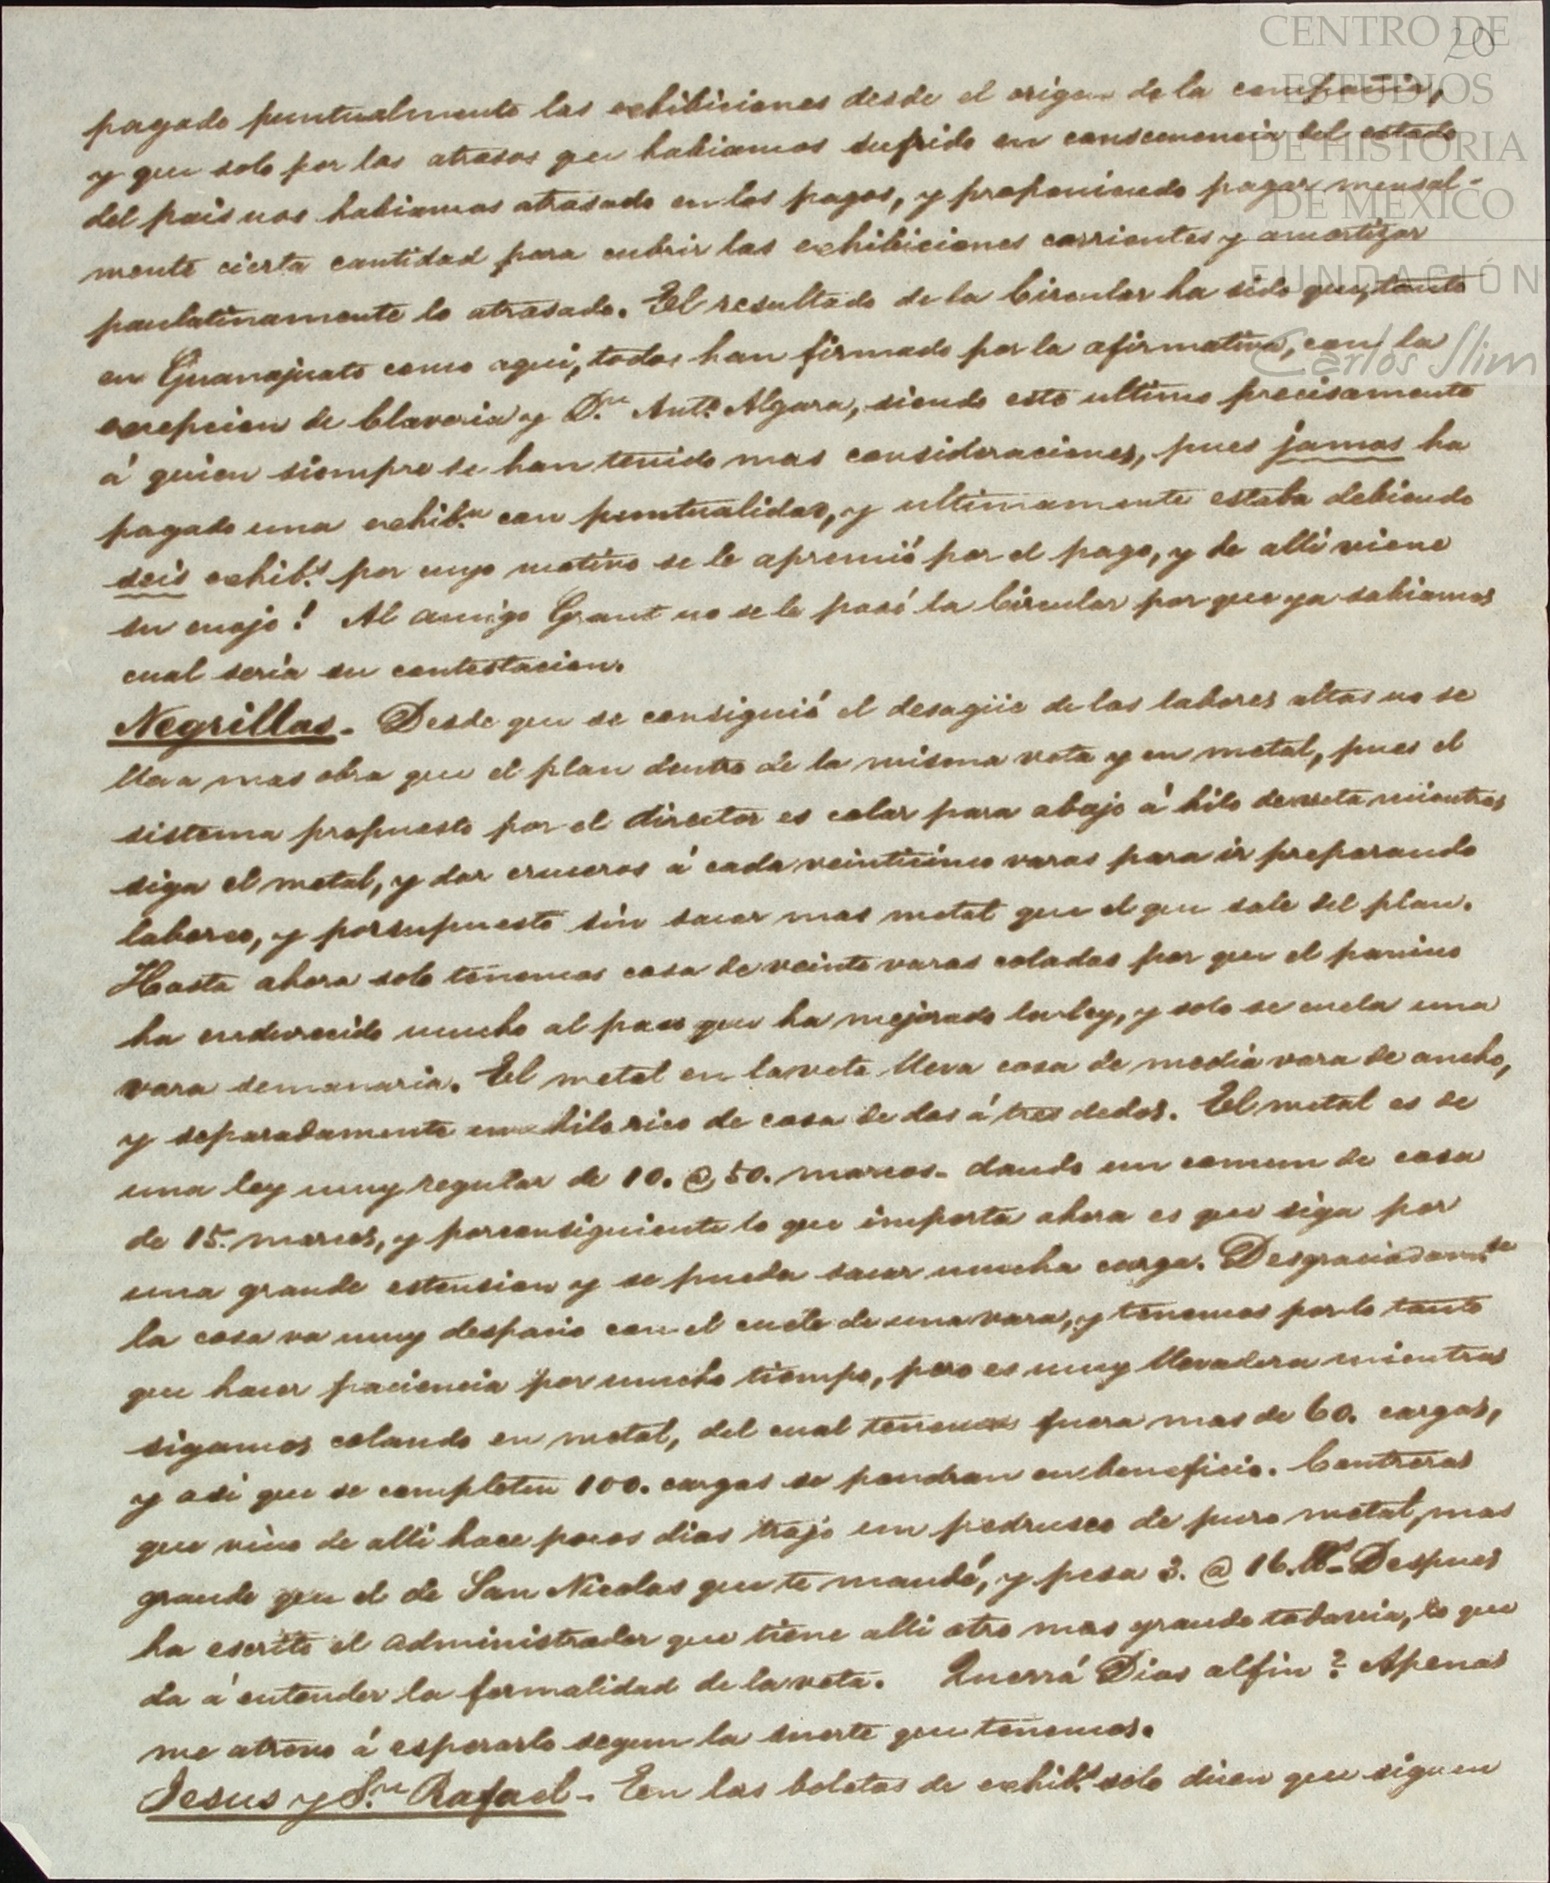 CENTRO DE
ESTUDIOS
DE HISTORIA
DE MEXICO
FUNDACIÓN
Carlos Slim
20
pagado puntualmente las exhibiciones desde el origen de la compañia,
y que solo por los atrasos que habiamos sufrido en consecuencia del estado
del pais nos habiamos atrasado en los pagos, y proponiendo pagar mensal-
mente cierta cantidad para cubrir las exhibiciones corrientes y amortizar
paulatinamente lo atrasado. El resultado de la Circular ha sido que, tanto
en Guanajuato como aqui, todos han firmado por la afirmativa, con la
excepcion de Claveria y D.n Ant.o Algara, siendo este ultimo precisamente
á quien siempre se han tenido mas consideraciones, pues jamas ha
pagado una exhib.n con puntualidad, y ultimamente estaba debiendo
seis exhib.s por cuyo motivo se le apremió por el pago, y de alli viene
su enojo! Al amigo Grant no se le pasó la Circular por que ya sabiamos
cual seria su contestacion.
Negrillas. Desde que se consiguió el desagüe de las labores altas no se
lleva mas obra que el plan dentro de la misma veta y en metal, pues el
sistema propuesto por el director es colar para abajo á hilo de veta mientras
siga el metal, y dar cruceros á cada veinticinco varas para ir preparando
labores, y porsupuesto sin sacar mas metal que el que sale del plan.
Hasta ahora solo tenemos cosa de veinte varas coladas por que el panino
ha endurecido mucho al paso que ha mejorado la ley, y solo se cuela una
vara semanaria. El metal en la veta lleva cosa de media vara de ancho,
y separadamente un hilo rico de cosa de dos á tres dedos. El metal es de
una ley muy regular de 10. @ 50. marcos. dando un comun de cosa
de 15. marcos, y porconsiguiente lo que importa ahora es que siga por
una grande estension y se pueda sacar mucha carga. Desgraciadam.te
la cosa va muy despacio con el cuele de una vara, y tenemos por lo tanto
que hacer paciencia por mucho tiempo, pero es muy llevadera mientras
sigamos colando en metal, del cual tenemos fuera mas de 60. cargas,
y asi que se completen 100. cargas se pondran en beneficio. Contreras
que vino de alli hace pocos dias trajo un pedrusco de puro metal, mas
grande que el de San Nicolas que te mandé, y pesa 3. @ 16. lbs. Despues
ha escrito el administrador que tiene alli otro mas grande todavia, lo que
da á entender la formalidad de la veta. Querrá Dios alfin? Apenas
me atrevo á esperarlo segun la suerte que tenemos.
Jesus y S.n Rafael. En las boletas de exhib.s solo dicen que siguen